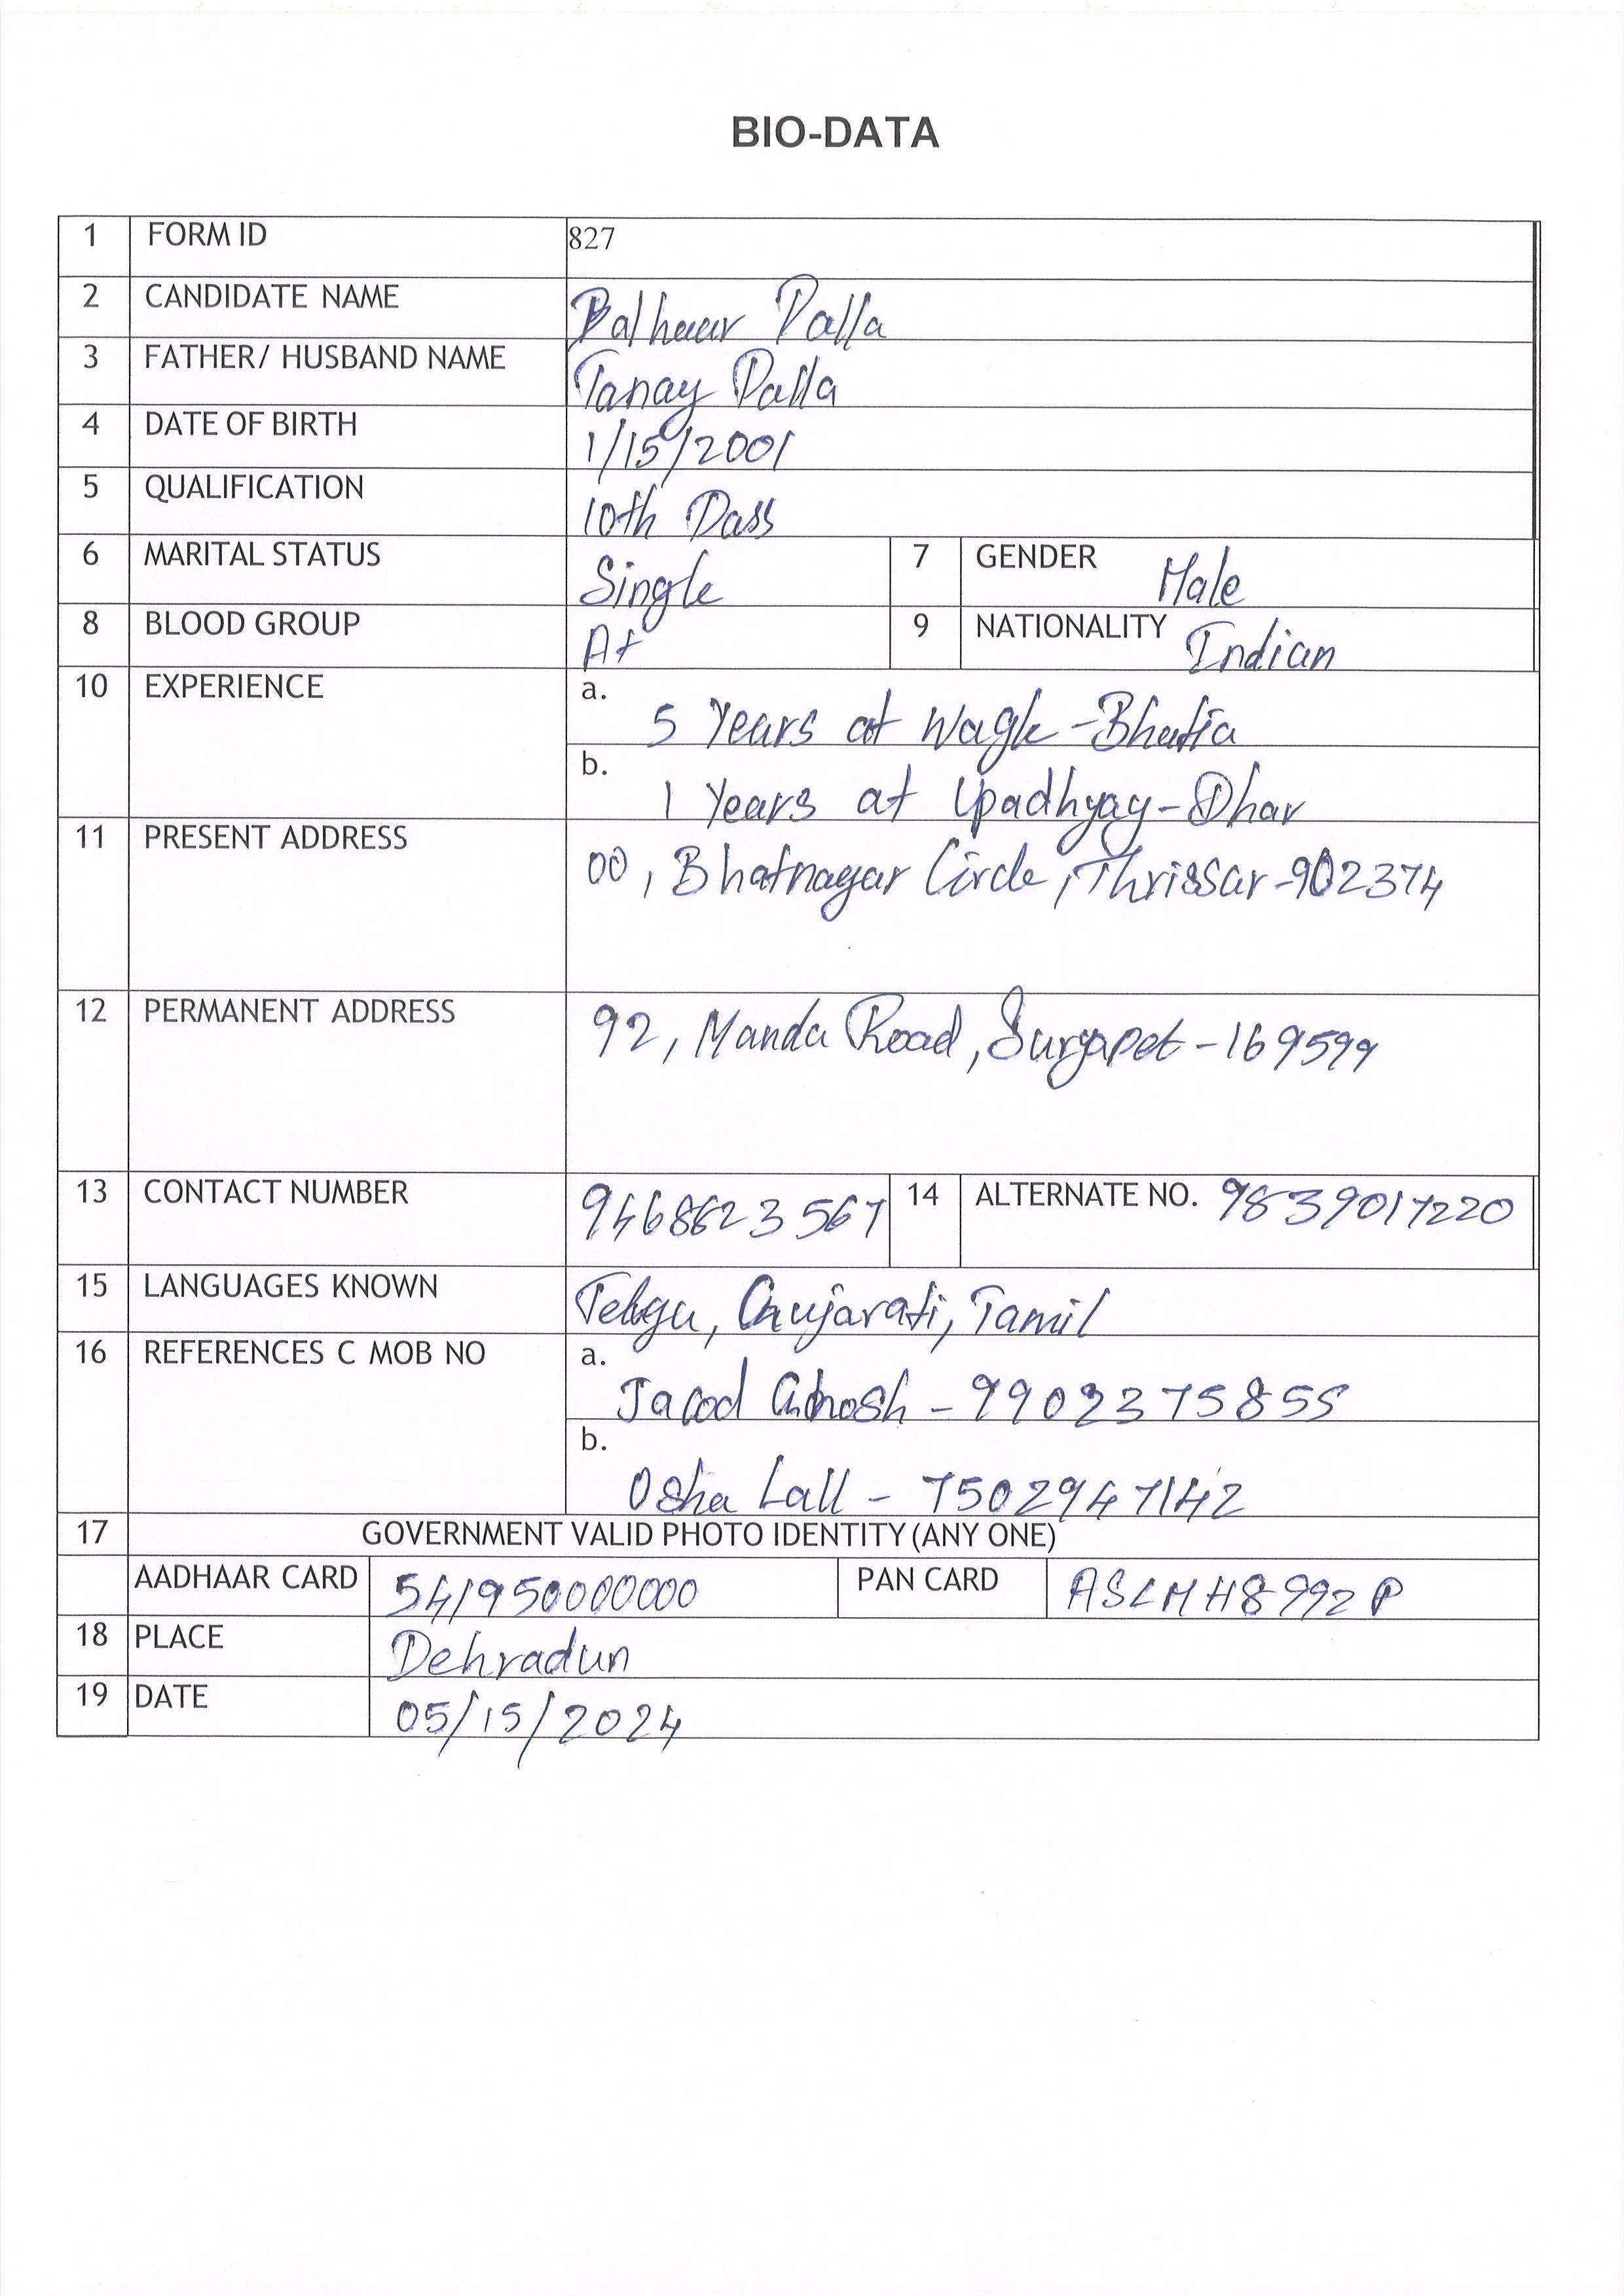 BIO-DATA
1 FORM ID 827
2 CANDIDATE NAME Palla
3 FATHER/ HUSBAND NAME Tanay Palla
4 DATE OF BIRTH 1/15/2001
5 QUALIFICATION 10th Pass
6 MARITAL STATUS Single 7 GENDER Male
8 BLOOD GROUP A+ 9 NATIONALITY Indian
10 EXPERIENCE a. 5 Years at Wagle-Bhatia
b. 1 Years at Upadhyay-Dhar
11 PRESENT ADDRESS 00, Bhatnagar Circle, Thrissur-902374
12 PERMANENT ADDRESS 92, Manda Road, Suryapet-169599
13 CONTACT NUMBER 9468623567 14 ALTERNATE NO. 9839017220
15 LANGUAGES KNOWN Telugu, Gujarati, Tamil
16 REFERENCES C MOB NO a. Jacob Ghosh - 9902375855
b. Osha Lall - 7502947142
17 GOVERNMENT VALID PHOTO IDENTITY (ANY ONE)
AADHAAR CARD 541950000000 PAN CARD ASLMH8992P
18 PLACE Dehradun
19 DATE 05/15/2024